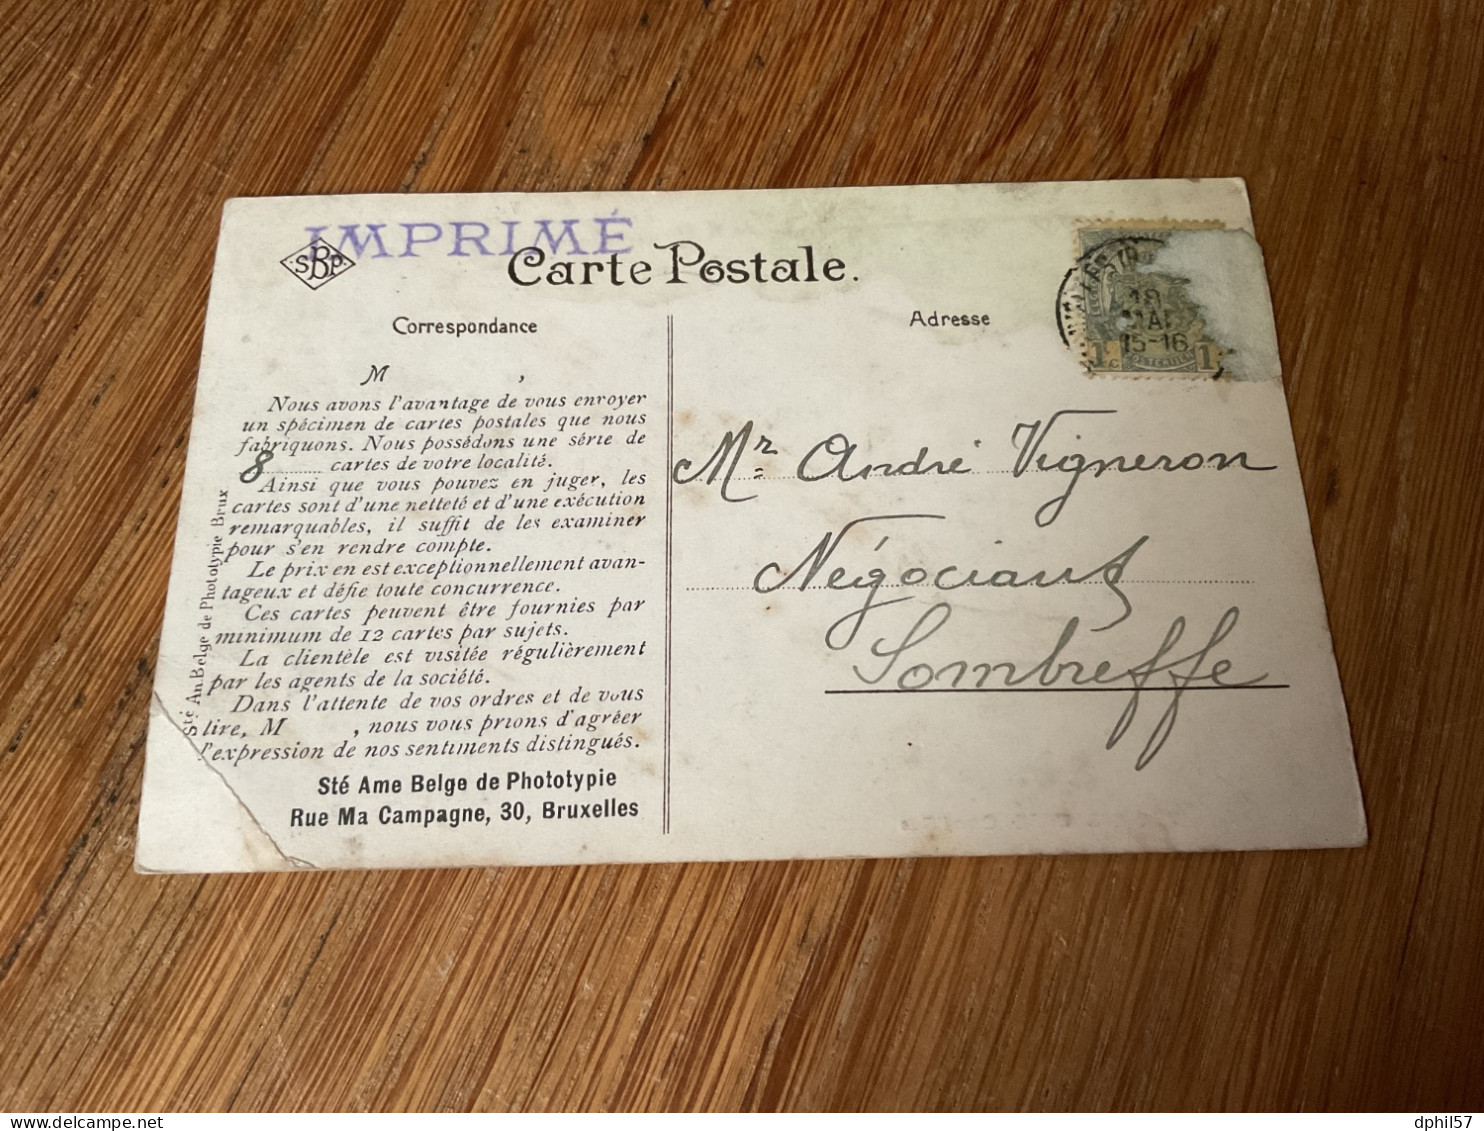 IMPRIMÉ
SBP
Carte Postale.
Correspondance
Adresse
18
MAI
15-16
1 C 1
M ,
Nous avons l'avantage de vous envoyer
un spécimen de cartes postales que nous
fabriquons. Nous possédons une série de
8 cartes de votre localité.
Ainsi que vous pouvez en juger, les
cartes sont d'une netteté et d'une exécution
remarquables, il suffit de les examiner
pour s'en rendre compte.
Le prix en est exceptionnellement avan-
tageux et défie toute concurrence.
Ces cartes peuvent être fournies par
minimum de 12 cartes par sujets.
La clientèle est visitée régulièrement
par les agents de la société.
Dans l'attente de vos ordres et de vous
lire, M , nous vous prions d'agréer
l'expression de nos sentiments distingués.
Sté Ame Belge de Phototypie
Rue Ma Campagne, 30, Bruxelles
Sté An. Belge de Phototypie Brux
Mr André Vigneron
Négociant
Sombreffe
delcampe.net
dphil57